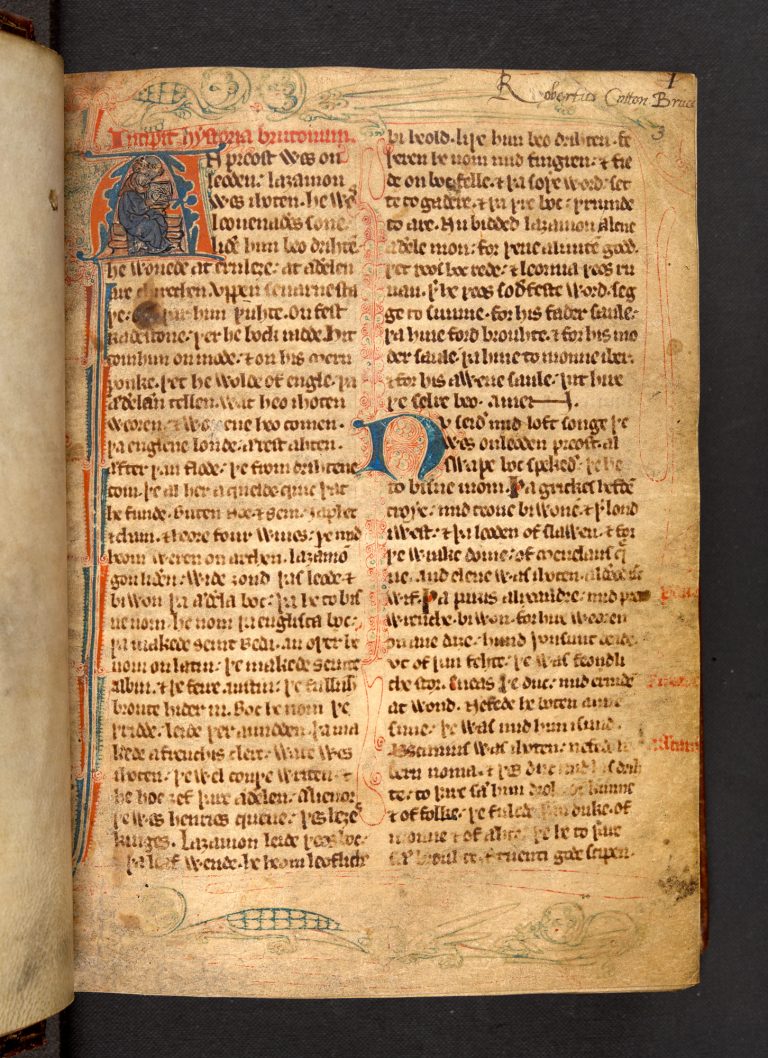 Robertus Cotton Bruce
1
3
Incipit hystoria brutonum.
An preost wes on
leoden; laȝamon
wes ihoten. he wes
leouenaðes sone;
liðe him beo drihtē.
he wonede at ernleȝe; at æðelen
are chirechen. vppen seuarne sta
þe; sel þar him þuhte. on fest
radestone; þer he bock radde. hit
com him on mode; & on his mern
þonke. þet he wolde of engle; þa
æðelæn tellen. wat heo ihoten
weoren; & wonene heo comen.
þa englene londe; ærest ahten.
æfter þan flode; þe from drihtene
com. þe al her aquelde quic þat
he funde. buten noe & sem; iaphet
& cham. & heore four wiues; þe mid
heom weren on archen. laȝamō
gon liðen; wide ȝond þas leode. &
biwon þa æðela boc; þa he to bis
ne nom. he nom þa englisca boc;
þa makede seint beda. an oþer he
nom on latin; þe makede seinte
albin. & þe feire austin; þe fulluht
broute hider in. boc he nom þe
þridde; leide þer amidden. þa ma
kede a frenchis clerc; wace wes
ihoten; þe wel couþe writen. &
he hoe ȝef þare æðelen; ælienor
þe wes henries quene; þes heȝes
kinges. laȝamon leide þeos boc;
& þa leaf wende. he heom leofliche
biheold. liþe him beo drihten. fe
þeren he nom mid fingren; & fie
de on boc felle. & þa soþe word; set
te to gadere. & þa þre boc; þrumde
to are. nu bidded laȝamon alcne
æðele mon; for þene almite godd.
þet þeos boc rede; & leornia þeos ru
nan. þ he þeos soðfeste word; seg
ge to sumne. for his fader saule;
þa hine ford brouhte. & for his mo
der saule; þa hine to monne iber.
& for his awene saule; þat hire
þe selre beo. amen.
Nv seið mid loft songe þe
wes on leoden preost. al
swa þe boc spekeð; þe he
to bisne inom. þa grickes hefdē
troye; mid teone biwone. & þ lond
iwest; & þa leoden of slawen. & for
þe wrake dome; of menelaus q̄
ne. elene was ihoten; alðeodisc
wif. þa paris alixandre; mid pret
wrenche; biwon. for hire weoren
on ane daȝe; hund þousunt deade.
vt of þan fehte; þe was feondli
che stor. eneas þe duc; mid ermde
at wond. nefede he boten anne
sune; þe was mid him isund.
asscanius was ihoten; nefede he
bern noma. & þes duc mid his driht
te; to þare sæ him droh. of kunne
& of folke; þe fulede þan duke. of
monne & of ahte; þe he to þare
sæ brouhte. & tuenti gode scipen.